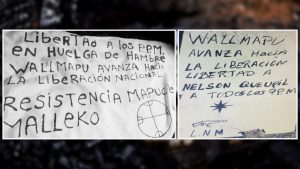 LIBERTAD A LOS P.P.M.
EN HUELGA DE HAMBRE
WALLMAPU AVANZA HACIA
LA LIBERACIÓN NACIONAL
RESISTENCIA MAPUCHE
MALLEKO
WALLMAPU
AVANZA HACIA
LA LIBERACIÓN
LIBERTAD A
NELSON QUEUPIL
A TODOS LOS PPM
L.N.M